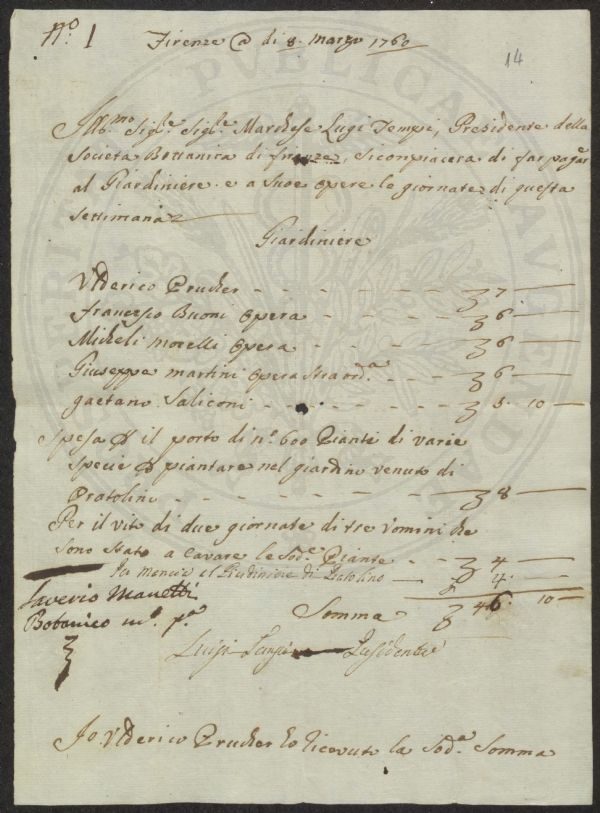 Nº. 1
Firenze @ di 8. Marzo 1760
14
Ill.mo Sig.e Sig.e Marchese Luigi Tempi, Presidente della
Società Bottanica di firenze, si conpiacera di far pagar
al Giardiniere e a Suoe opere le giornate di questa
Settimana
Giardiniere
Vlderico Prucker - - - - - - 7
francesco Buoni opera - - - - 6
Micheli Morelli opera - - - - 6
Giuseppe Martini opera straord.a - - 6
gaetano Saliconi - - - - - 5. 10
Spesa p il porto di nº. 600 Piante di varie
specie p piantare nel giardino venuto di
Pratolino - - - - - - 8
Per il vito di due giornate di tre Vomini che
sono stato a cavare le Sod.e Piante - - 4
Per mancie al Giardiniere di Pratolino 4.
Saverio Manetti
Botanico m.o p.o
Somma 46. 10
Luigi Tempi Presidente
Jo Vlderico Prucker ho Ricevuto la Sod.a Somma
VERITA PVBLICA AVGENDAE